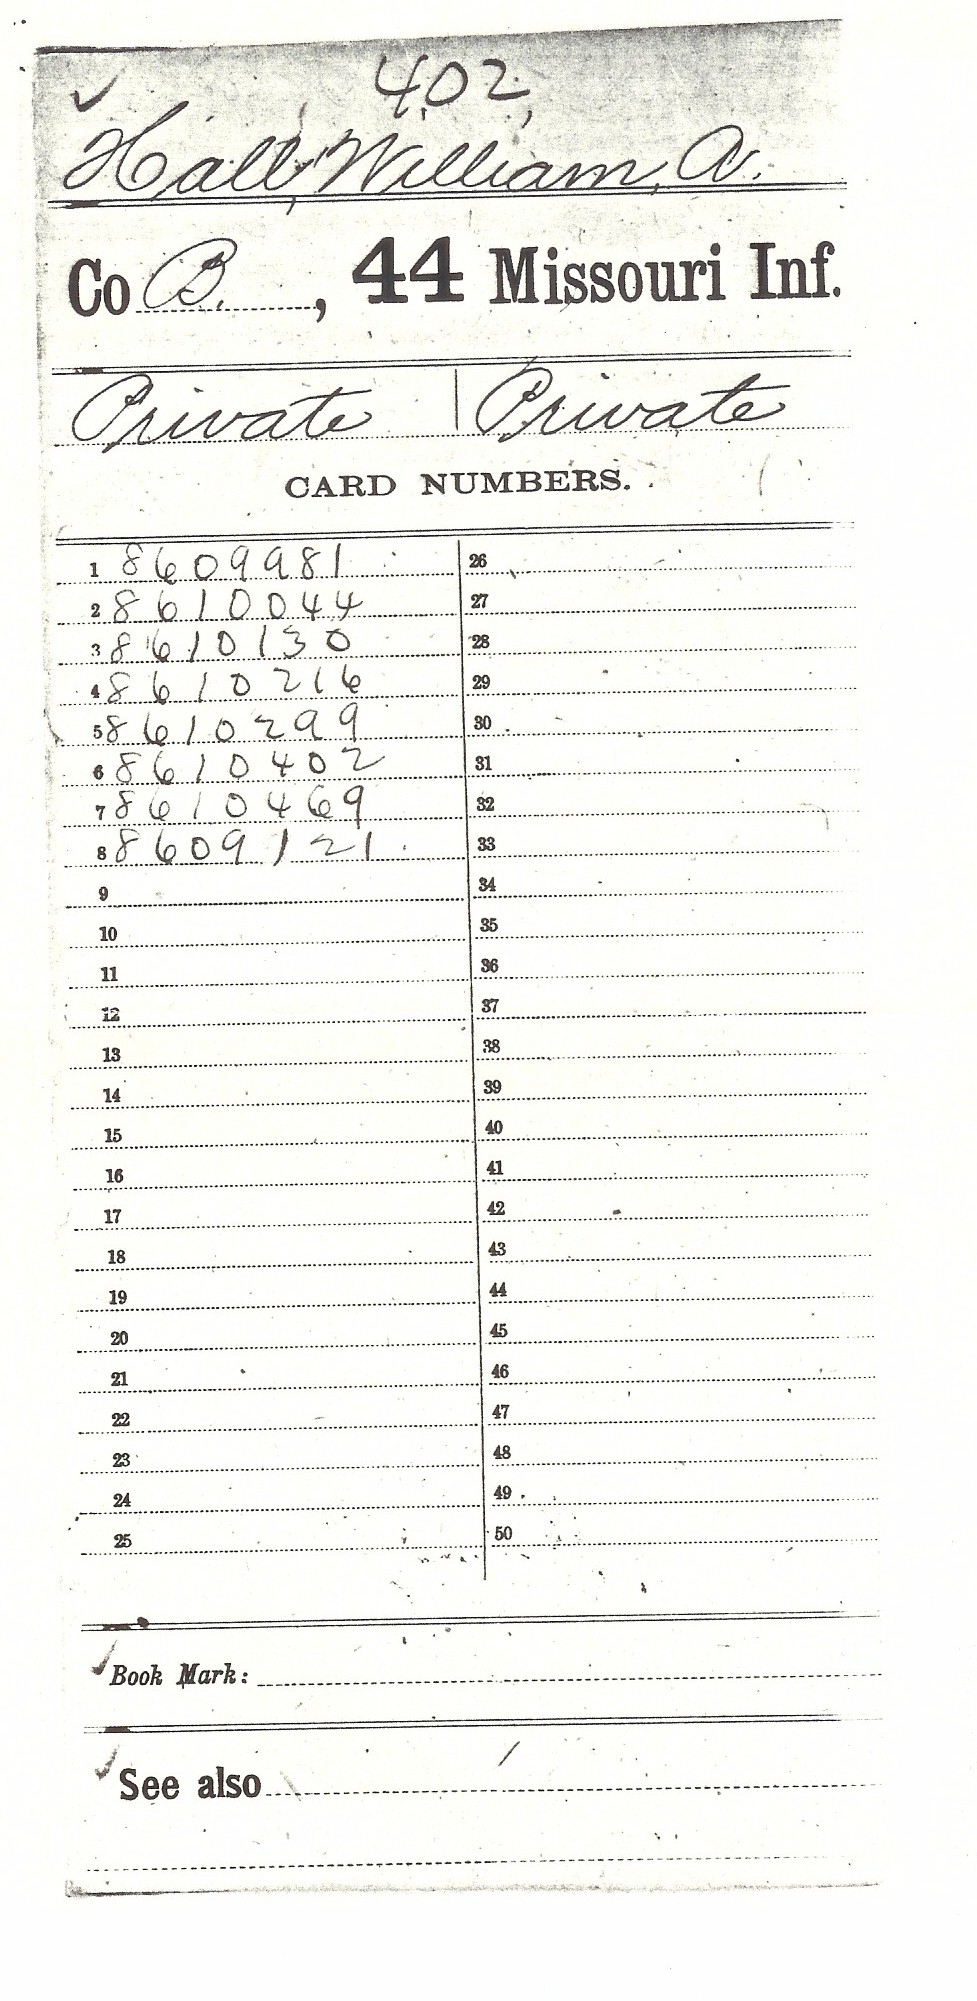 402
Hall, William, A.
Co B. , 44 Missouri Inf.
Private | Private
CARD NUMBERS.
1 8609981 26
2 8610044 27
3 8610130 28
4 8610216 29
5 8610299 30
6 8610402 31
7 8610469 32
8 8609121 33
9 34
10 35
11 36
12 37
13 38
14 39
15 40
16 41
17 42
18 43
19 44
20 45
21 46
22 47
23 48
24 49
25 50
Book Mark:
See also